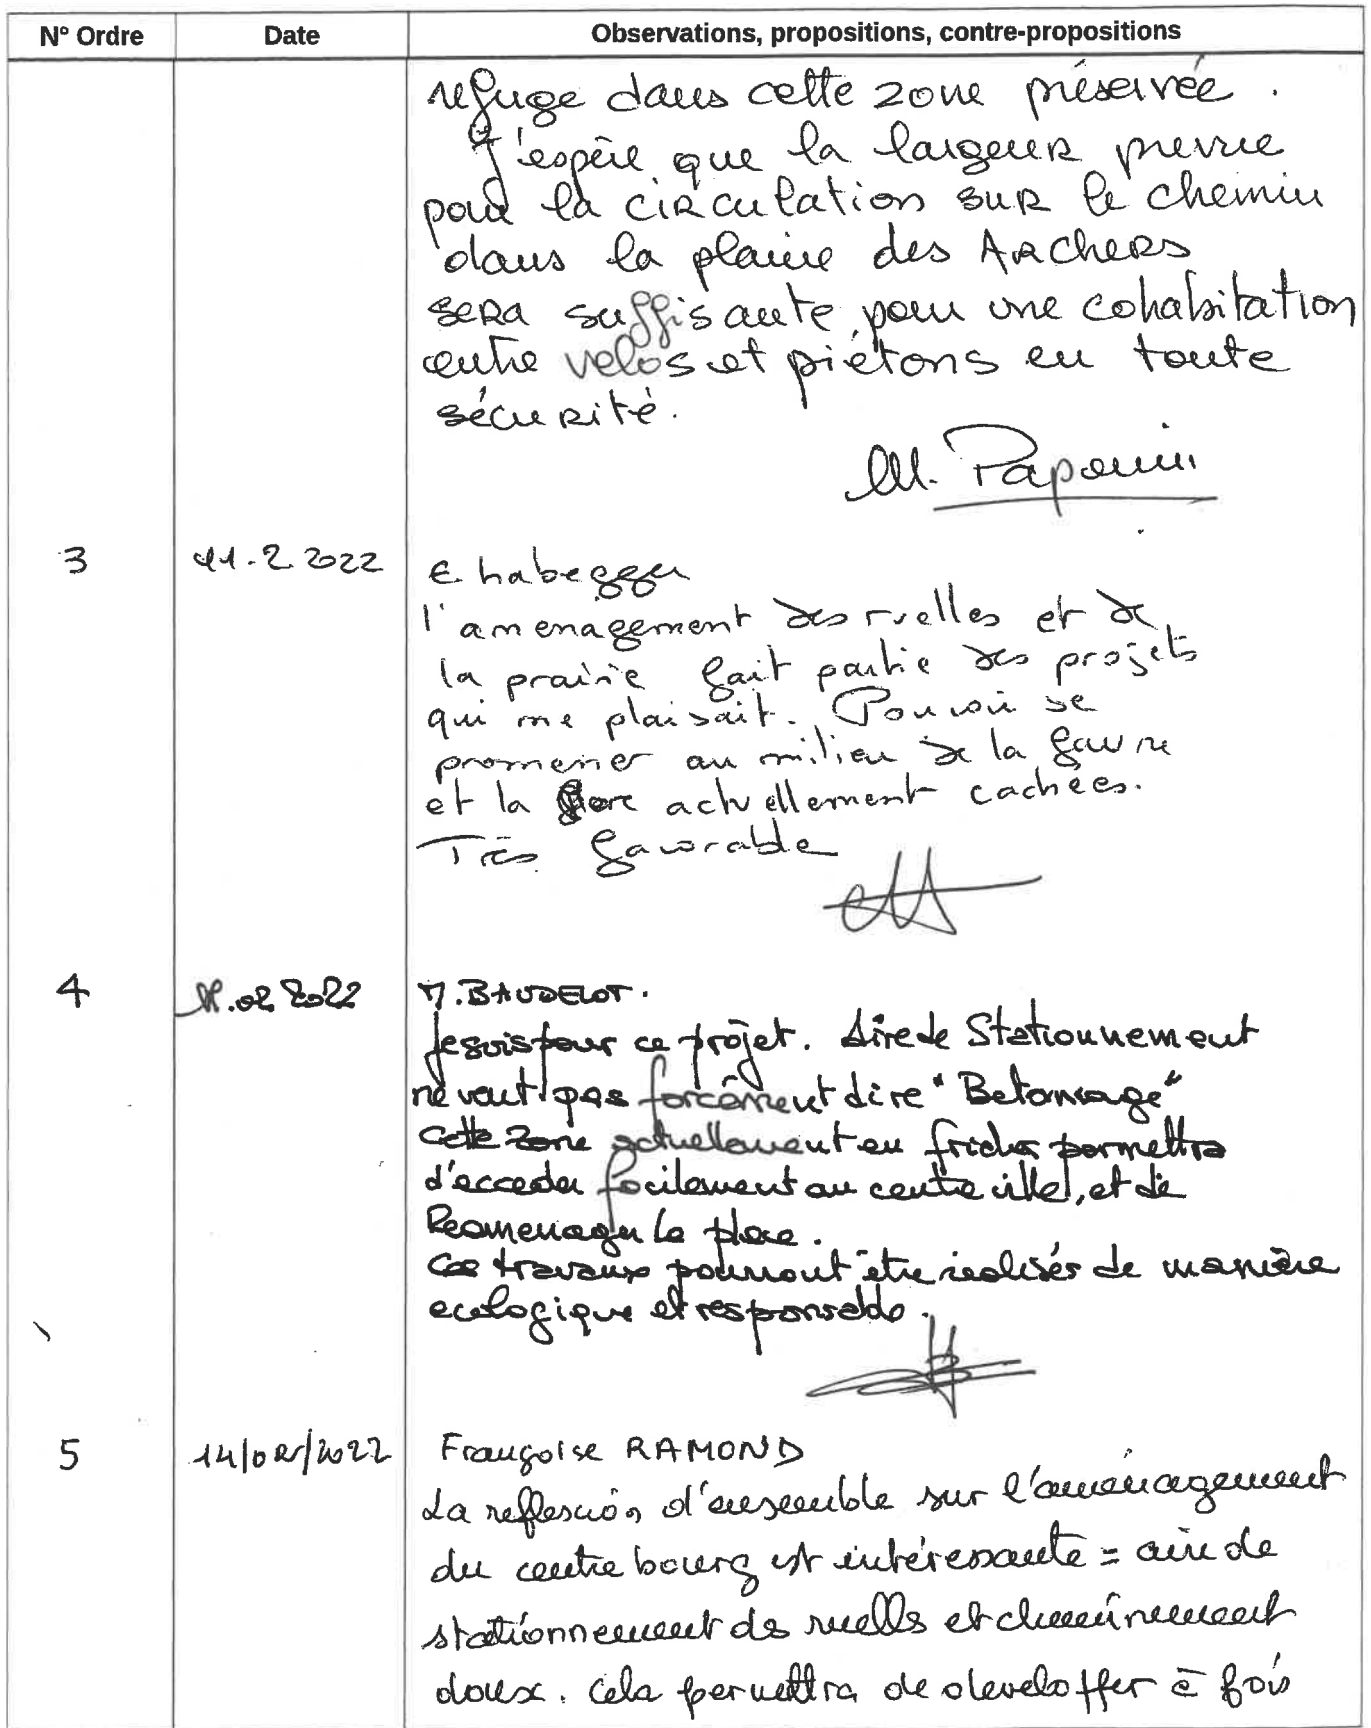 N° Ordre Date Observations, propositions, contre-propositions
refuge dans cette zone préservée.
J'espère que la largeur prevue
pour la circulation sur le chemin
dans la plaine des Archers
sera suffisante pour une cohabitation
entre velos et piétons en toute
sécurité.
M. Paponin
3 11.2.2022 E habegger
l'amenagement des ruelles et de
la prairie fait partie des projets
qui me plaisait. Pouvoir se
promener au milieu de la faune
et la flore actuellement cachées.
Très favorable
4 11.02 2022 M. BAUDELOT.
Je suis pour ce projet. Aire de Stationnement
ne veut pas forcément dire "Betonnage"
Cette zone actuellement en friche permettra
d'acceder facilement au centre ville, et de
Reamenager la place.
Ces travaux pourront être réalisés de manière
ecologique et responsable.
5 14/02/2022 Françoise RAMOND
La reflexion d'ensemble sur l'aménagement
du centre bourg est intéressante = aire de
stationnement des ruelles et cheminement
doux. Cela permettra de developper à fois